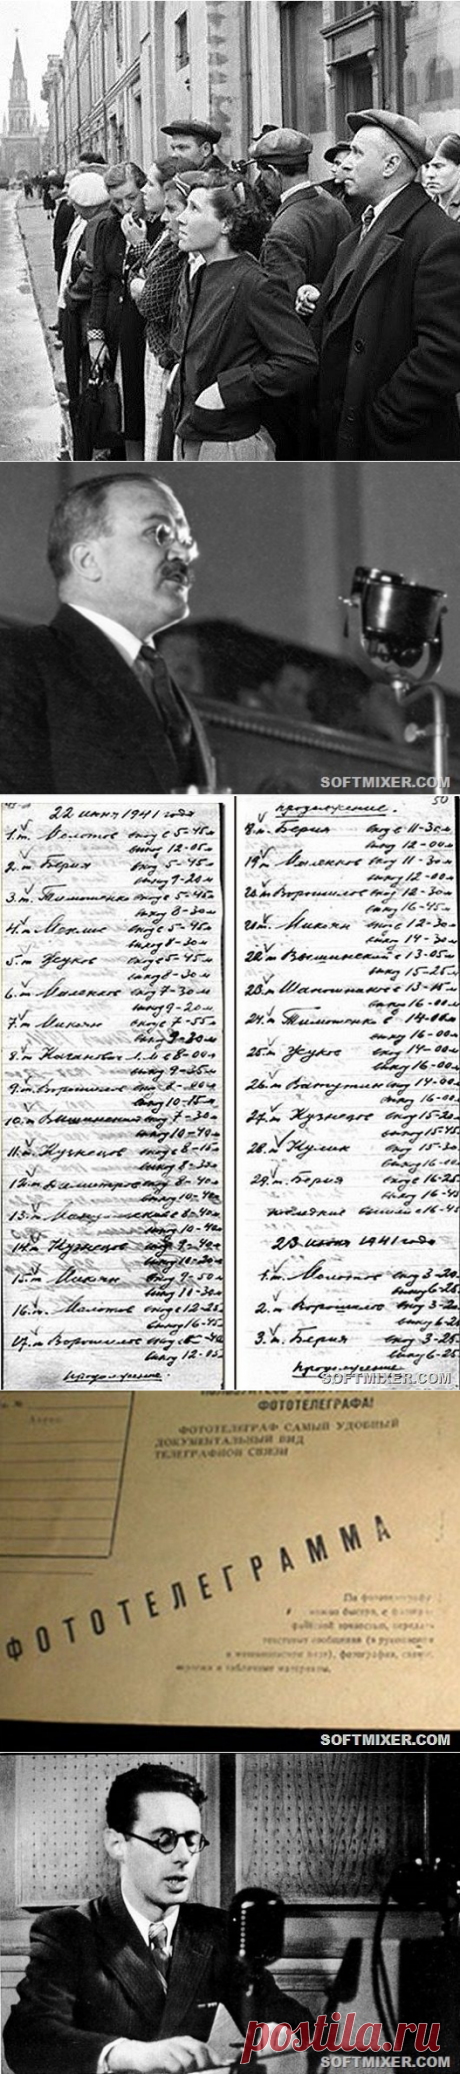 SOFTMIXER.COM
22 июня 1941 года
1. т. Молотов вход в 5-45 м
выход 12-05 м
2. т. Берия вход 5-45 м
выход 9-20 м
3. т. Тимошенко вход в 5-45 м
выход 8-30 м
4. т. Мехлис вход в 5-45 м
выход 8-30 м
5. т. Жуков вход в 5-45 м
выход 8-30 м
6. т. Маленков вход 7-30 м
выход 9-20 м
7. т. Микоян вход в 7-55 м
выход 9-30 м
8. т. Каганович Л.М в 8-00 м
выход 9-35 м
9. т. Ворошилов
выход 10-15 м
10. т. Вышинский вход 7-30 м
выход 10-40 м
11. т. Кузнецов вход в 8-15 м
выход 8-30 м
12. т. Димитров вход 8-40 м
выход 10-40 м
13. т. Мануильский в 8-40 м
выход 10-40 м
14. т. Кузнецов вход 9-40 м
выход 10-20 м
15. т. Микоян вход 9-50 м
выход 10-30 м
16. т. Молотов вход в 12-25 м
выход 16-45 м
17. т. Ворошилов вход в
выход 12-05
продолжение.
50
продолжение.
18. т. Берия вход в 11-30 м
выход 12-00 м
19. т. Маленков вход 11-30 м
выход 12-00 м
20. т. Ворошилов вход 12-30 м
выход 16-45 м
21. т. Микоян вход в 12-30 м
выход 14-30 м
22. т. Вышинский в 13-05 м
выход 15-25 м
23. т. Шапошников в 13-15 м
выход 16-00 м
24. т. Тимошенко в 14-00 м
выход 16-00 м
25. т. Жуков вход 14-00 м
выход 16-00 м
26. т. Ватутин вход 14-00 м
выход 16-00 м
27. т. Кузнецов вход 15-20 м
выход 15-45
28. т. Кулик вход 15-30 м
выход 16-00
29. т. Берия вход в 16-25
выход 16-45
последние вышли в 16-45
23 июня 1941 года
1. т. Молотов вход 3-20
выход 6-25
2. т. Ворошилов вход 3-2
выход 6-2
3. т. Берия вход 3-25
выход 6-25
продолжение
SOFTMIXER.COM
ФОТОТЕЛЕГРАФА!
ФОТОТЕЛЕГРАФ САМЫЙ УДОБНЫЙ
ДОКУМЕНТАЛЬНЫЙ ВИД
ТЕЛЕГРАФНОЙ СВЯЗИ
№
Адрес
ФОТОТЕЛЕГРАММА
По фототелеграфу
можно быстро, с
точностью, передать
текстовые сообщения (в рукописном
и машинописном виде), фотографии, схемы,
чертежи и табличные материалы.
SOFTMIXER.COM
postila.ru
SOFTMIXER.COM